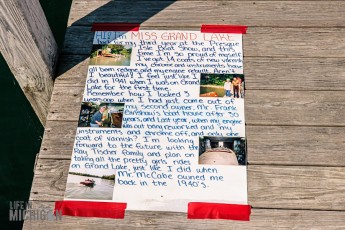 Hi I'm MISS GRAND LAKE
This is my third year at the Presque
Isle Boat Show, and this
time I'm so proud of myself.
14 coats of new varnish
my chrome and instruments have
all been redone and my engine rebuilt. Aren't
I beautiful? I feel just like I
did in 1941 when I was on Grand
Lake for the first time.
Remember how I looked 3
years ago when I had just come
out of my second owner, Mr. Frank
boat house after 30
years, and last year, when my engine
was out being reworked and my
instruments and chrome off, and only one
coat of varnish? I'm looking
forward to the future with the
Ray Tischer family and plan on
taking all the pretty girls rides
on Grand Lake, just like I did when
Mr. McCabe owned me
back in the 1940's.
LIFE IN
MICHIGAN